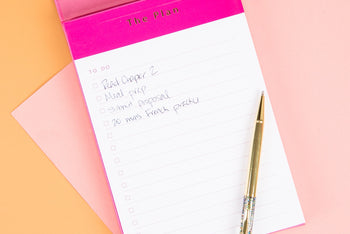 The Plan
TO DO
Read Chapter 2
Meal prep
Submit proposal
20 mins French practice